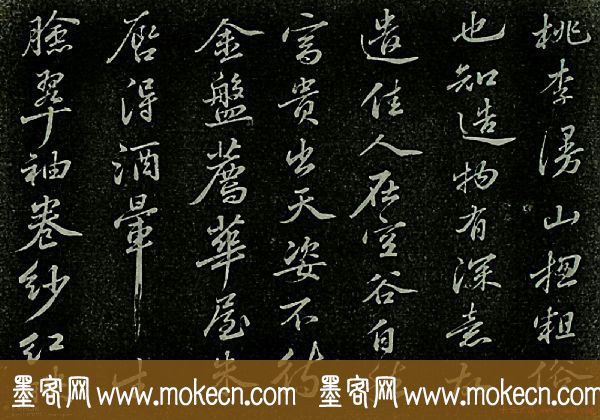 桃李漫山揔粗俗
也知造物有深意
遣佳人在空谷自
富貴出天姿不待
金盤薦華屋朱
唇得酒暈
臉翠袖卷紗紅
墨客网 www.mokecn.com 墨客网 www.mokecn.com